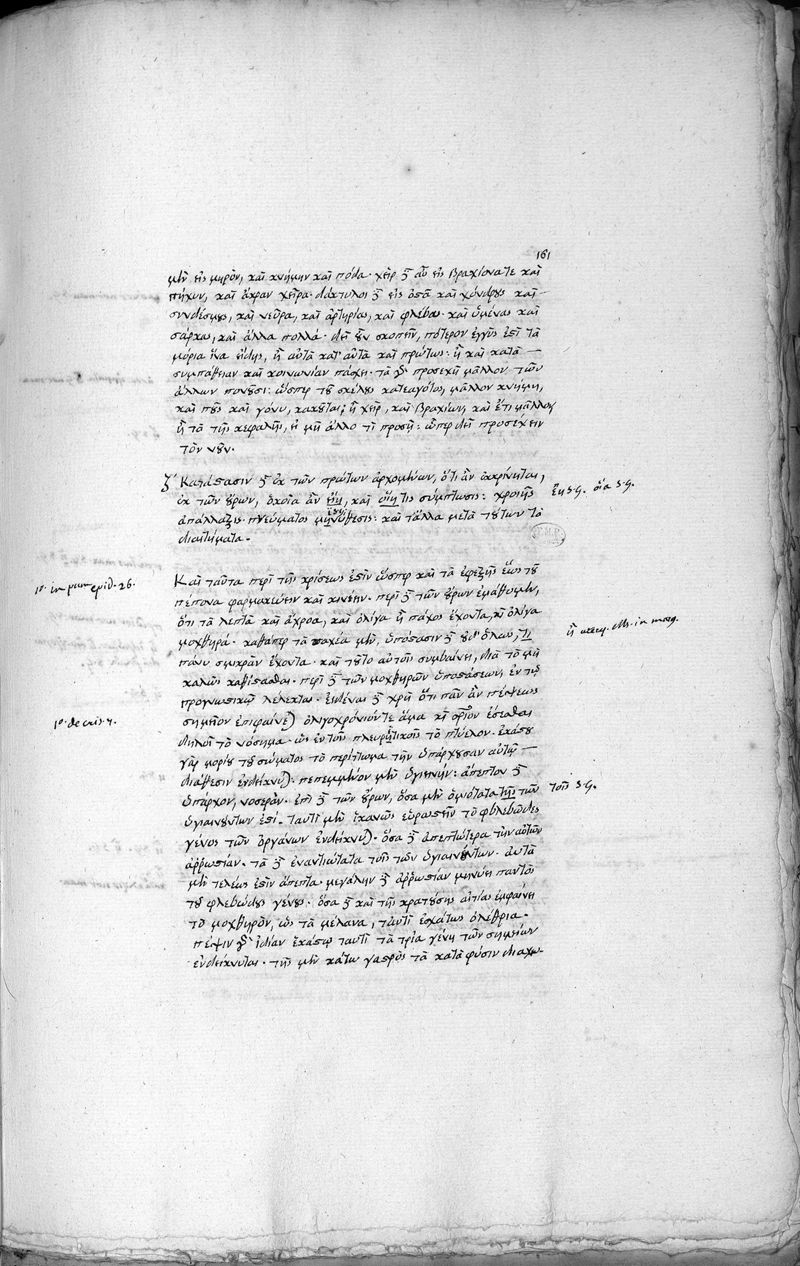 161
μὲν εἰς μηρὸν, καὶ κνήμην καὶ πόδα· χεὶρ δὲ αὖ εἰς βραχίονά τε καὶ
πῆχυν, καὶ ἄκραν χεῖρα· δάκτυλοι δὲ εἰς ὀστᾶ καὶ χόνδρους καὶ
συνδέσμους, καὶ νεῦρα, καὶ ἀρτηρίας, καὶ φλέβας· καὶ ὑμένας καὶ
σάρκας, καὶ ἄλλα πολλά· δεῖ οὖν σκοπεῖν, πότερον ἐγγύς ἐστι τὰ
μόρια ἵνα εἰδῇς, ἢ αὐτὰ κατ' αὐτὰ καὶ πρώτως: ἢ καὶ κατὰ
συμπάθειαν καὶ κοινωνίαν πάσχει· τὰ γὰρ προσεχῆ μᾶλλον τῶν
ἄλλων πονοῦσι: ὥσπερ τοῦ σκέλους κατεαγότος, μᾶλλον κνήμη,
καὶ ποὺς καὶ γόνυ, κακοῦται; ἢ χεὶρ, καὶ βραχίων, καὶ ἔτι μᾶλλον
ἢ τὰ τῆς κεφαλῆς, εἰ μὴ ἄλλο τι προσῇ: ᾧπερ δεῖ προσέχειν
τὸν νοῦν.
ζ' Κατάστασιν δὲ ἐκ τῶν πρώτων ἀρχομένων, ὅτι ἂν ἐκκρίνεται,
ἐκ τῶν οὔρων, ὁκοῖα ἂν εἴη, καὶ οἵη τις σύμπτωσις: χροιῆς
ἔῃ s.g. οἵα s.g.
ἀπάλλαξις πνεύματος μινύθεσις: καὶ τἄλλα μετὰ τούτων τὰ
διαιτήματα.
Καὶ ταῦτα περὶ τῆς κρίσεώς ἐστιν ὥσπερ καὶ τὰ ἐφεξῆς ἕως τοῦ
1º. in pum epid. 26.
πέπονα φαρμακεύειν καὶ κινέειν. περὶ δὲ τῶν οὔρων ἐμάθομεν,
ὅτι τὰ λεπτὰ καὶ ἄχροα, καὶ ὀλίγα ἢ πάχος ἔχοντα, καὶ ὀλίγα
μοχθηρά. καθάπερ τὰ παχέα μὲν, ὑπόστασιν δὲ οὐδ' ὅλως, ἢ
πάνυ σμικρὰν ἔχοντα. καὶ τοῦτο αὐτοῖς συμβαίνει, διὰ τὸ μὴ
καλῶς καθίστασθαι. περὶ δὲ τῶν μοχθηρῶν ὑποστάσεων, ἐν τῷ
προγνωστικῷ λέλεκται. εἰδέναι δὲ χρὴ ὅτι πᾶν ἂν πέψεως
σημεῖον ἐπιφαίνεται ὀλιγοχρόνιόν τε ἅμα καὶ ἔσεσθαι
1º. de cris 7.
δηλοῖ τὸ νόσημα. ὡς ἐν τοῖς πλευριτικοῖς τὸ πτύελον. ἑκάστου
γὰρ μορίου τοῦ σώματος τὸ περίττωμα τὴν ὑπάρχουσαν αὐτῷ
διάθεσιν ἐνδείκνυται: πεπεμμένον μὲν ὑγιεινήν: ἄπεπτον δὲ
ὑπάρχον, νοσεράν. ἐπὶ δὲ τῶν οὔρων, ὅσα μὲν ὁμοιότατα τῆς τῶν
τοῖς s.g.
ὑγιαινόντων ἐστὶ. ταυτὶ μὲν ἱκανῶς εὐρωστεῖν τὸ φλεβῶδες
γένος τῶν ὀργάνων ἐνδείκνυται. ὅσα δὲ ἀπεπτότερα τὴν αὐτῶν
ἀρρωστίαν. τὰ δὲ ἐναντιώτατα τοῖς τῶν ὑγιαινόντων. αὐτὰ
μὲν τελέως ἐστὶν ἄπεπτα. μεγάλην δὲ ἀρρωστίαν μηνύει παντὸς
τοῦ φλεβώδους γένους. ὅσα δὲ καὶ τῆς κρατούσης αἰτίας ἐμφαίνει
τὸ μοχθηρὸν, ὡς τὰ μέλανα, ταυτὶ ἐσχάτως ὀλέθρια.
πέψιν δ' ἰδίαν ἑκάστῳ ταυτὶ τὰ τρία γένη τῶν σημείων
ἐνδείκνυται. τῆς μὲν κάτω γαστρὸς τὰ κατὰ φύσιν διαχω-